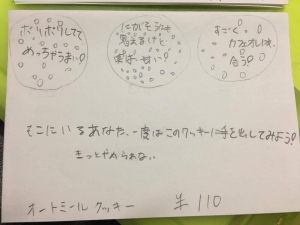 ポリポリしてて
めっちゃうまい!
にがそうに
見えるけど
実は…甘い!
すごく
カフェオレに
合う!
そこにいるあなた、一度はこのクッキーに手を出してみよう!
きっとやめられない
オートミールクッキー ¥110